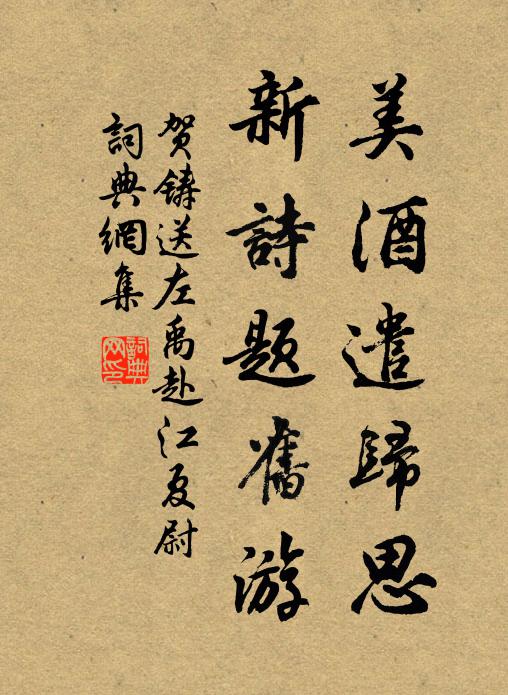 美酒遣歸思
新詩題舊游
賀鑄送左禹赴江夏尉
詞典網集
詞典
网印